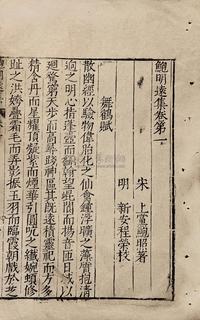 鮑明遠集卷第一
宋 上黨鮑照著
明 新安程榮校
舞鶴賦
散幽經以驗物偉胎化之仙禽鍾浮曠之藻質抱清
迥之明心指蓬壺而翻翰望崑閬而揚音匝日域以
迴騖窮天步而高尋踐神區其既遠積靈祀而方多
精含丹而星曜頂凝紫而煙華引圓吭之纖婉頓修
趾之洪姱疊霜毛而弄影振玉羽而臨霞朝戲於芝